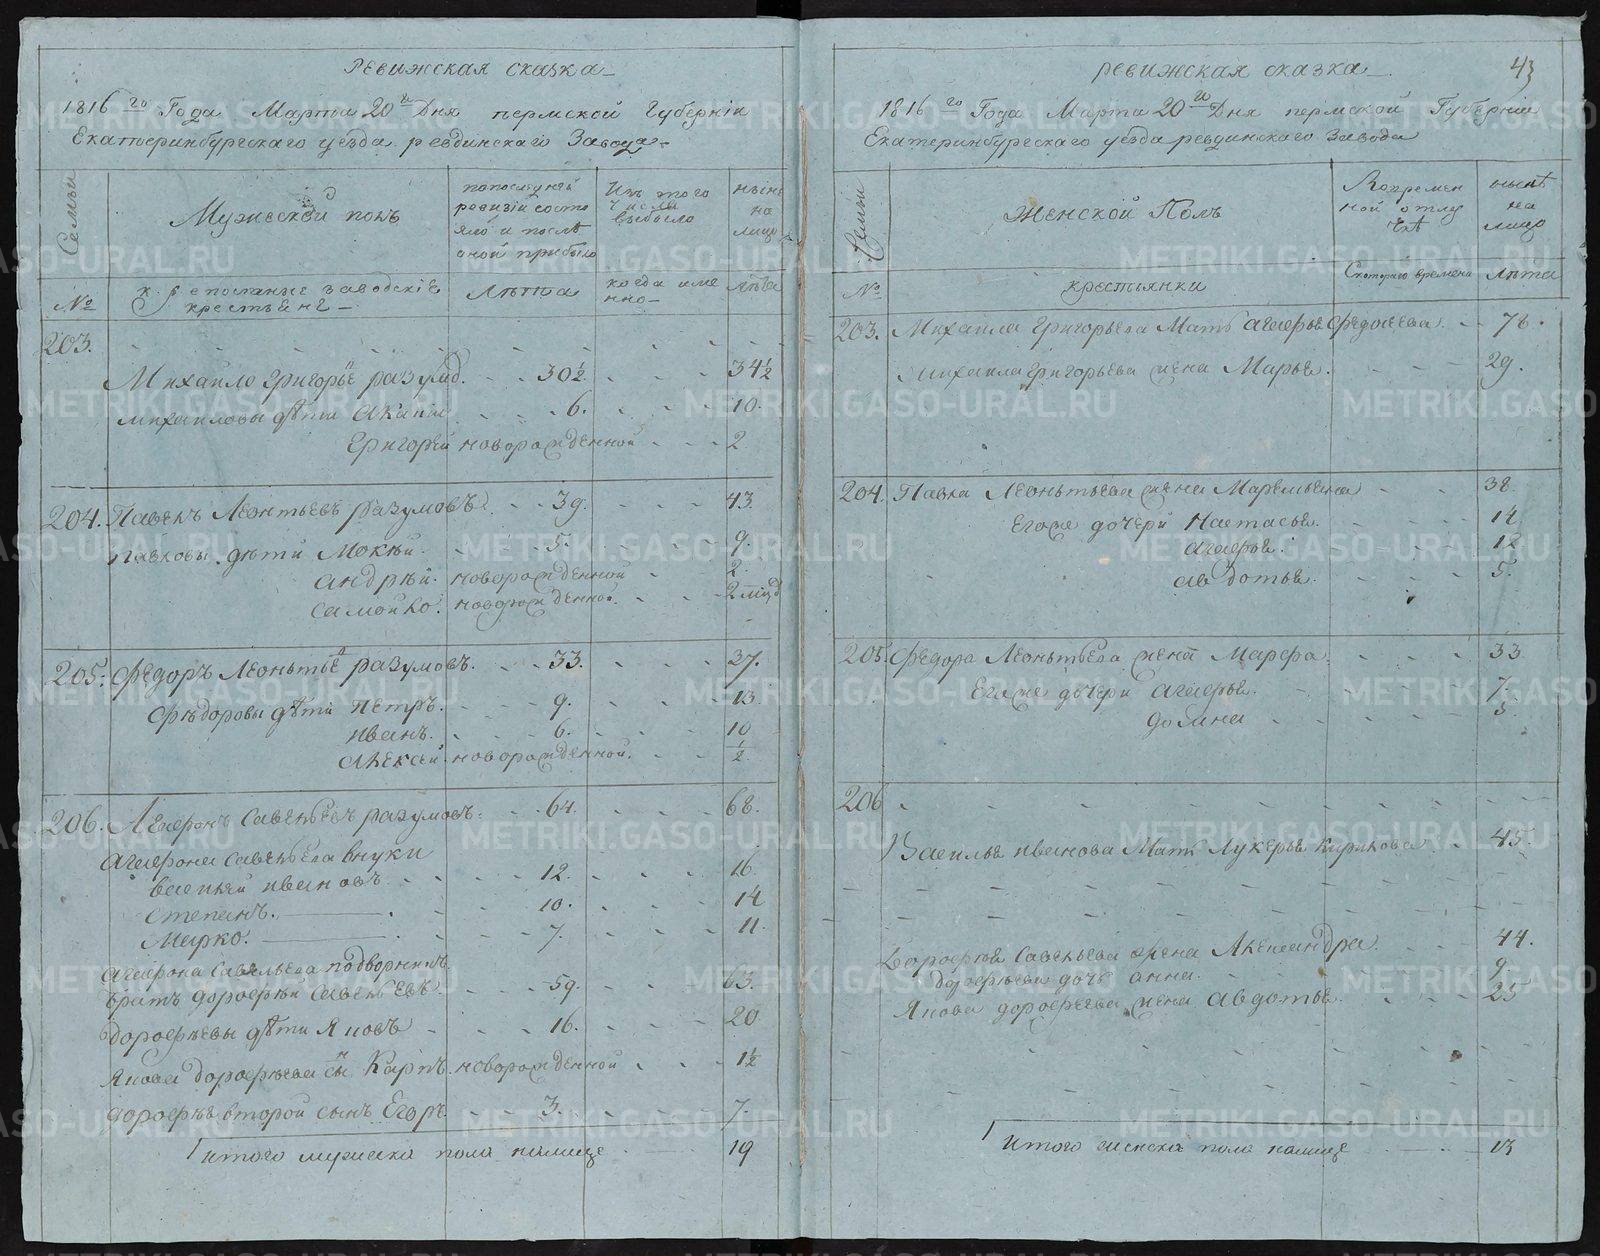 Ревижская сказка
1816го Года Марта 20го Дня пермской Губернiи
Екатеринбурскаго уѣзда ревдинскаго Завода
Семьи
Мужеской полъ
попослѣдней
ревизiи состо
яло и послѣ
оной прибыло
Изъ того
числа
выбыло
нынѣ
на
лицо
№
крепостные заводскiе
крестьяне
Лѣта
когда име
нно
Лѣта
203.
Михайло Григорьевъ разумо. 30½. 34½
Михайловы дѣти Акапiй 6. 10.
Григорей новорожденной 2
204. Павелъ Леонтьевъ разумовъ. 39. 43.
Павловы дѣти Мокѣй. 5. 9.
андрѣй. новорожденной 2.
самойло. новорожденной. 2 мѣсц
205. Федоръ Леонтье разумовъ. 33. 37.
Фѣдоровы дѣти Петръ. 9. 13
иванъ. 6. 10
алексѣй новорожденной. ½
206. Агафонъ Савельевъ разумовъ. 64. 68.
агафона савельева внуки
васильй ивановъ 12. 16.
степанъ. 10. 14
Марко. 7. 11.
агафона савельева подворникъ
братъ дорофѣй савельевъ. 59. 63.
дорофѣевы дѣти Яковъ 16. 20
Якова дорофѣева сынъ Карпъ новорожденной 1½
дорофѣя второй сынъ Егоръ. 3. 7.
итого мужеска пола налице 19
43
ревижская сказка
1816го Года Марта 20го Дня пермской Губернiи
Екатеринбурскаго уѣзда ревдинскаго Завода
Семьи
Женской Полъ
Вовремен
ной отлу
чкѣ
нынѣ
на
лицо
№
крестьянки
Скотораго времени
Лѣта
203. Михаила Григорьева Мать агафья Федосѣева 78.
Михаила Григорьева жена Марья. 29.
204. Павла Леонтьева жена Маремьяна 38.
Егоже дочери Настасья. 14
агафья. 12
авдотья. 5.
205. Федора Леонтьева жена Марфа. 33
Егоже дочери агафья. 7.
домна 5.
206
Василья иванова Мать Лукерья кирилова 45.
Дорофѣя савельева жена Александра. 44.
дорофѣева дочь анна. 9.
Якова дорофѣева жена авдотья. 25
итого женска пола налице 13
METRIKI.GASO-URAL.RU